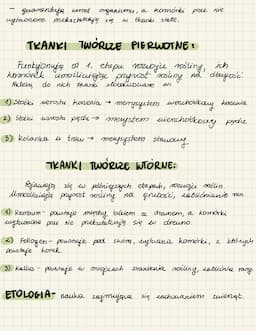 - gwarantują wzrost organizmu, a komórki poza nie
wytworzone przekształcają się w tkanki stałe.
TKANKI TWÓRCZE PIERWOTNE:
Funkcjonują od 1. etapu rozwoju rośliny, ich
komórki umożliwiające przyrost rośliny na długość.
Należą do nich tkanki zlokalizowane w:
1) Stożki wzrostu korzenia → merystem wierzchołkowy korzenia
2) Stożki wzrostu pędu → merystem wierzchołkowy pędu
3) Kolanka u traw → merystem stawowy
TKANKI TWÓRCZE WTÓRNE:
Pojawiają się w późniejszych etapach rozwoju roślin.
Umożliwiają przyrost rośliny na grubość,
1) Kambium - powstaje między łykiem a drewnem, a komórki
przekształcają się w drewno.
2) Fellogen - powstaje pod skórą, wytwarza komórki, z których
powstaje korek.
3) Kallus - powstaje w miejscach zranienia rośliny,
ETOLOGIA - nauka zajmująca się zachowaniem zwierząt.